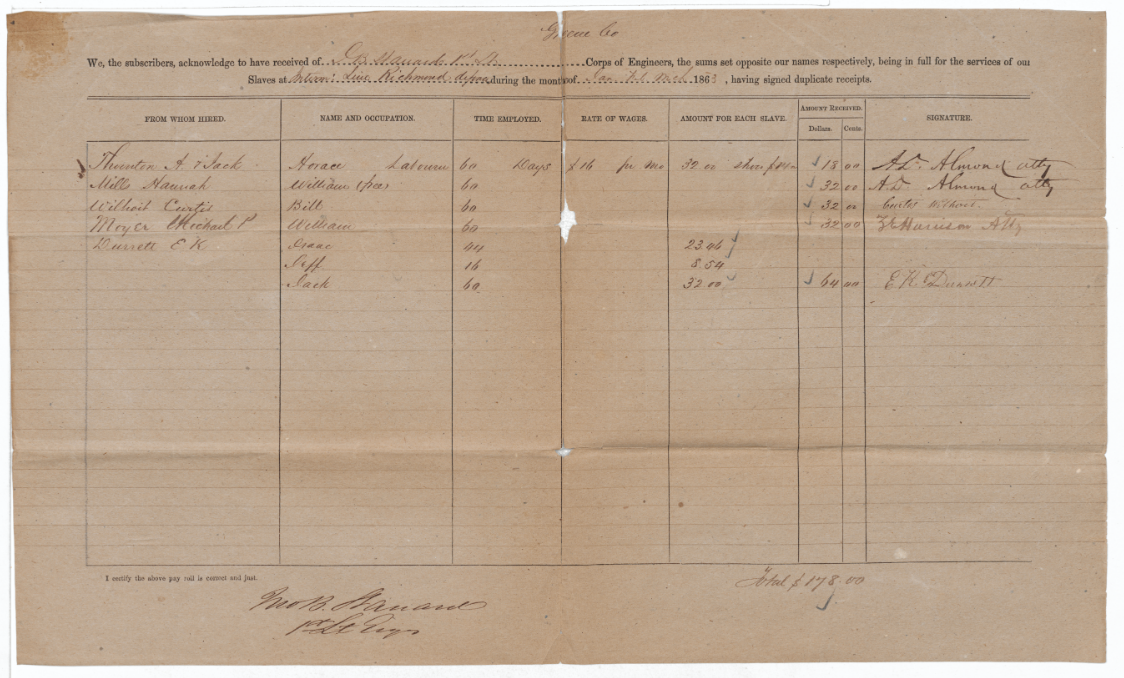 Greene Co
We, the subscribers, acknowledge to have received of J. B. Stanard 1st Lt Corps of Engineers, the sums set opposite our names respectively, being in full for the services of our
Slaves at Line Richmond defences during the month of Jan Feb Mch 1863, having signed duplicate receipts.
FROM WHOM HIRED. NAME AND OCCUPATION. TIME EMPLOYED. RATE OF WAGES. AMOUNT FOR EACH SLAVE. AMOUNT RECEIVED. SIGNATURE.
Dollars. Cents.
Thornton A & Jack Horace Labourer 60 Days $16 pr Mo 32 00 18 00 A.D. Almond atty
Mills Hannah William (free) 60 32 00 A.D. Almond atty
Wilhoit Curtis Bill 60 32 00 Curtis Wilhoit
Moyer Michael P William 60 32 00 Harrison Atty
Durrett E K Isaac 44 23.46
Jeff 16 8.54
Jack 60 32 00 64 00 E K Durrett
I certify the above pay roll is correct and just.
Total $178.00
Jno B. Stanard
1st Lt Engrs